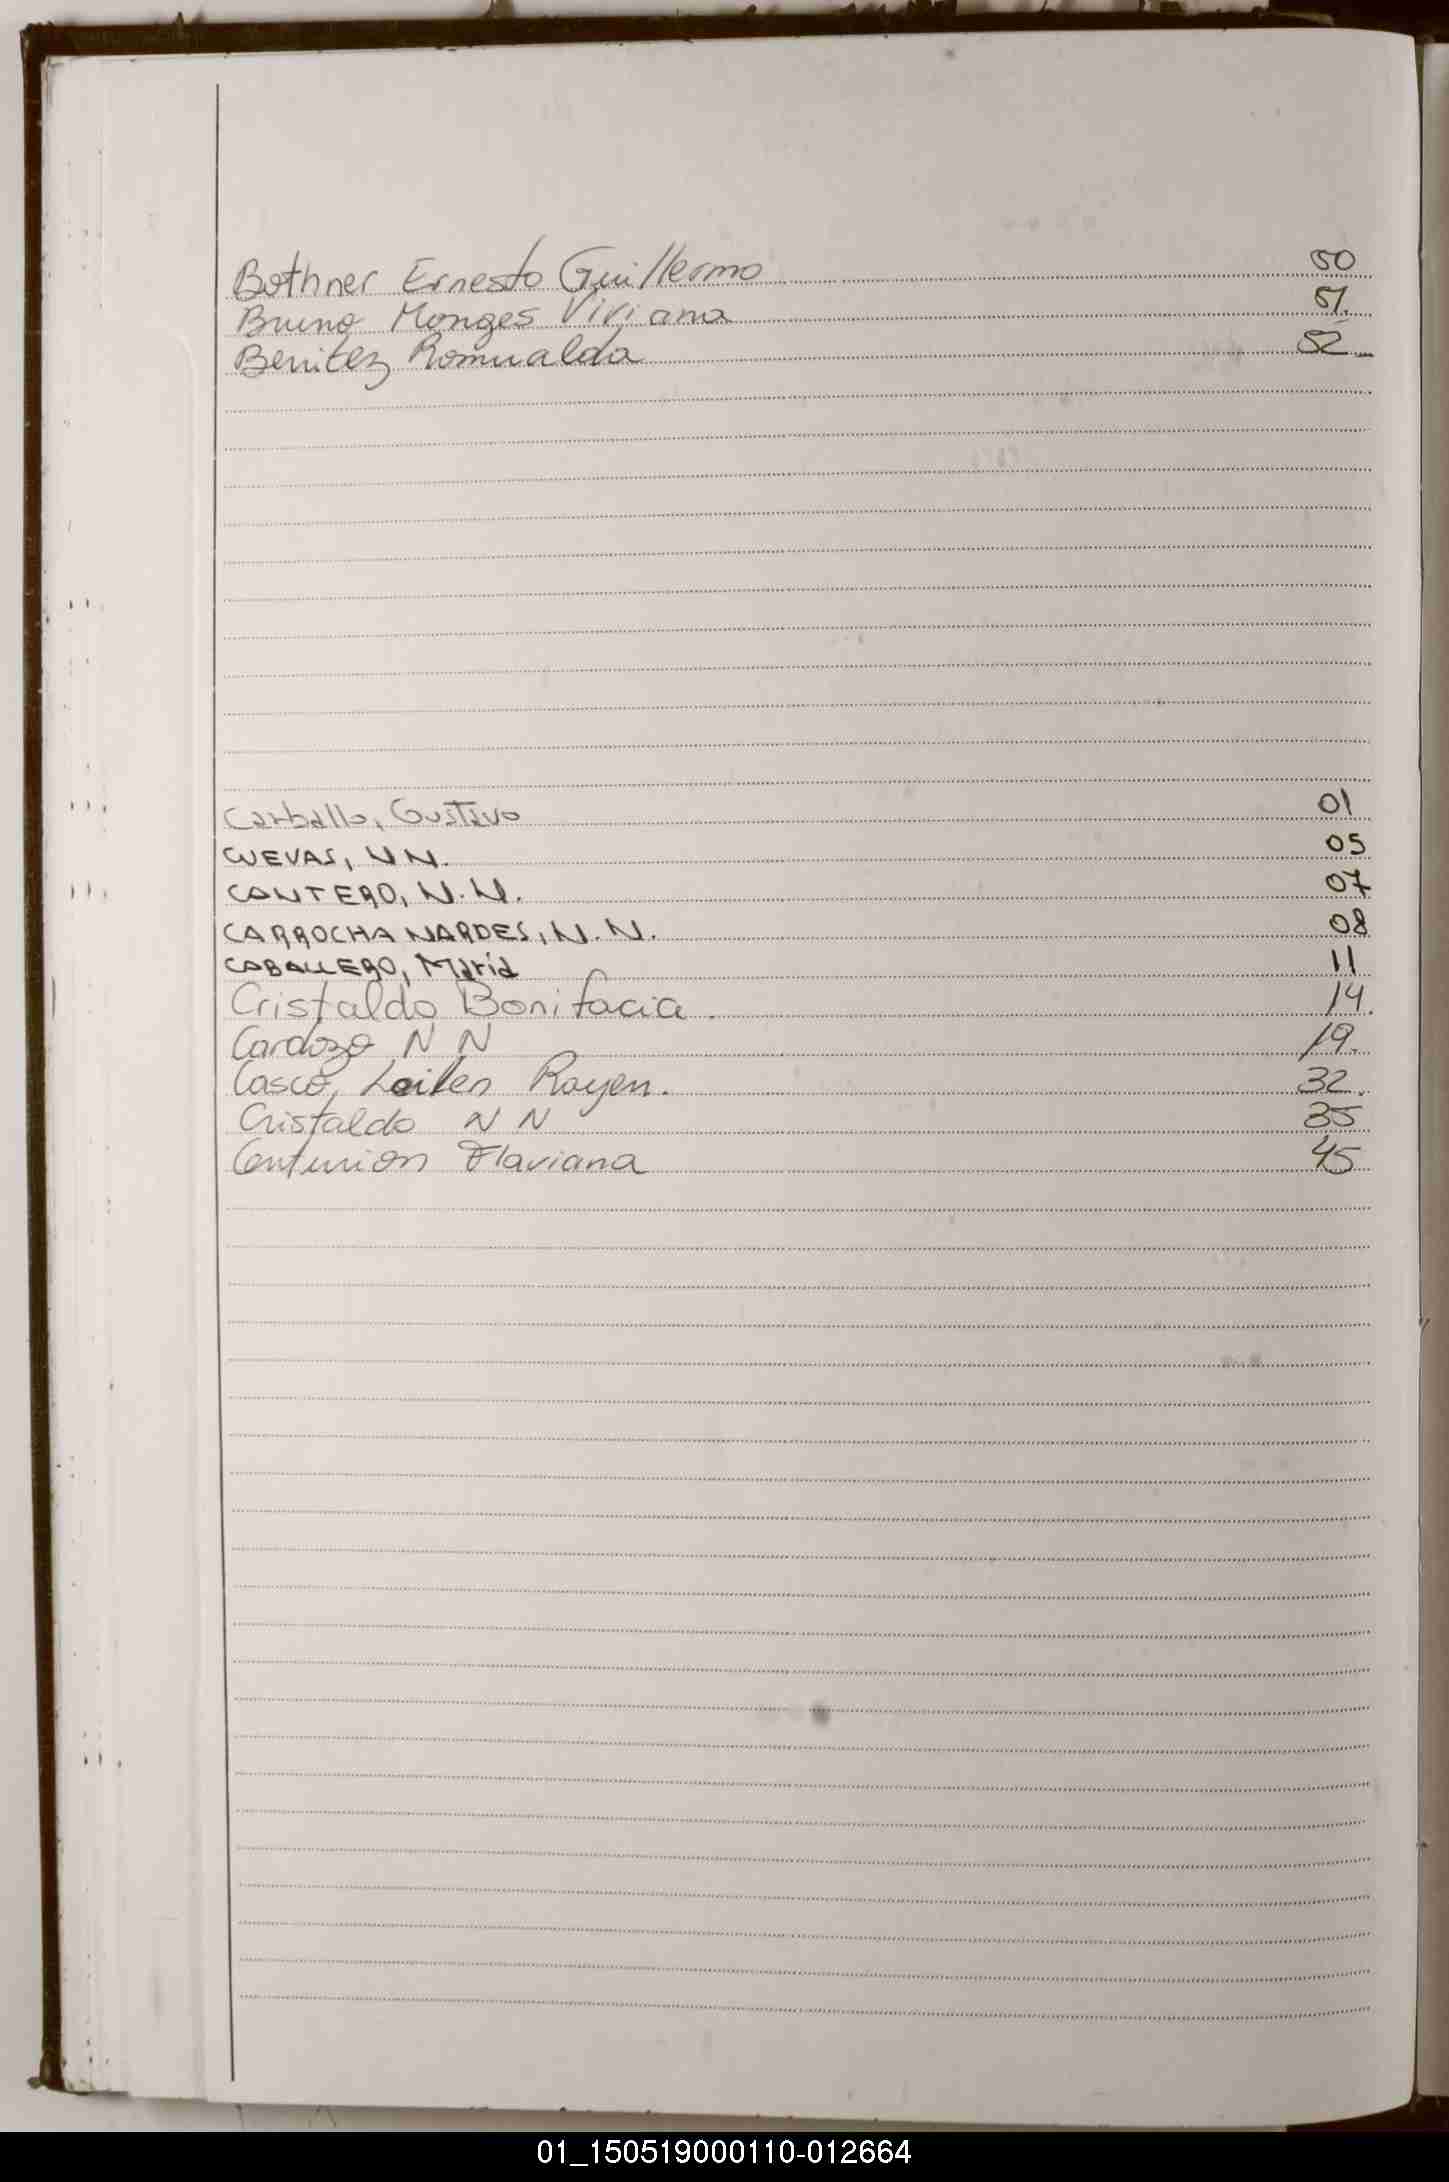 Bothner Ernesto Guillermo 50
Bruno Monges Viviana 51.
Benitez Romualda 52
Carballo, Gustavo 01
CUEVAS, N N. 05
CANTERO, N.N. 07
CARROCHA NARDES, N.N. 08
CABALLERO, María 11
Cristaldo Bonifacia. 14.
Cardozo N N 19.
Casco, Leilen Rayen. 32.
Cristaldo N N 35
Centurion Flaviana 45
01_150519000110-012664